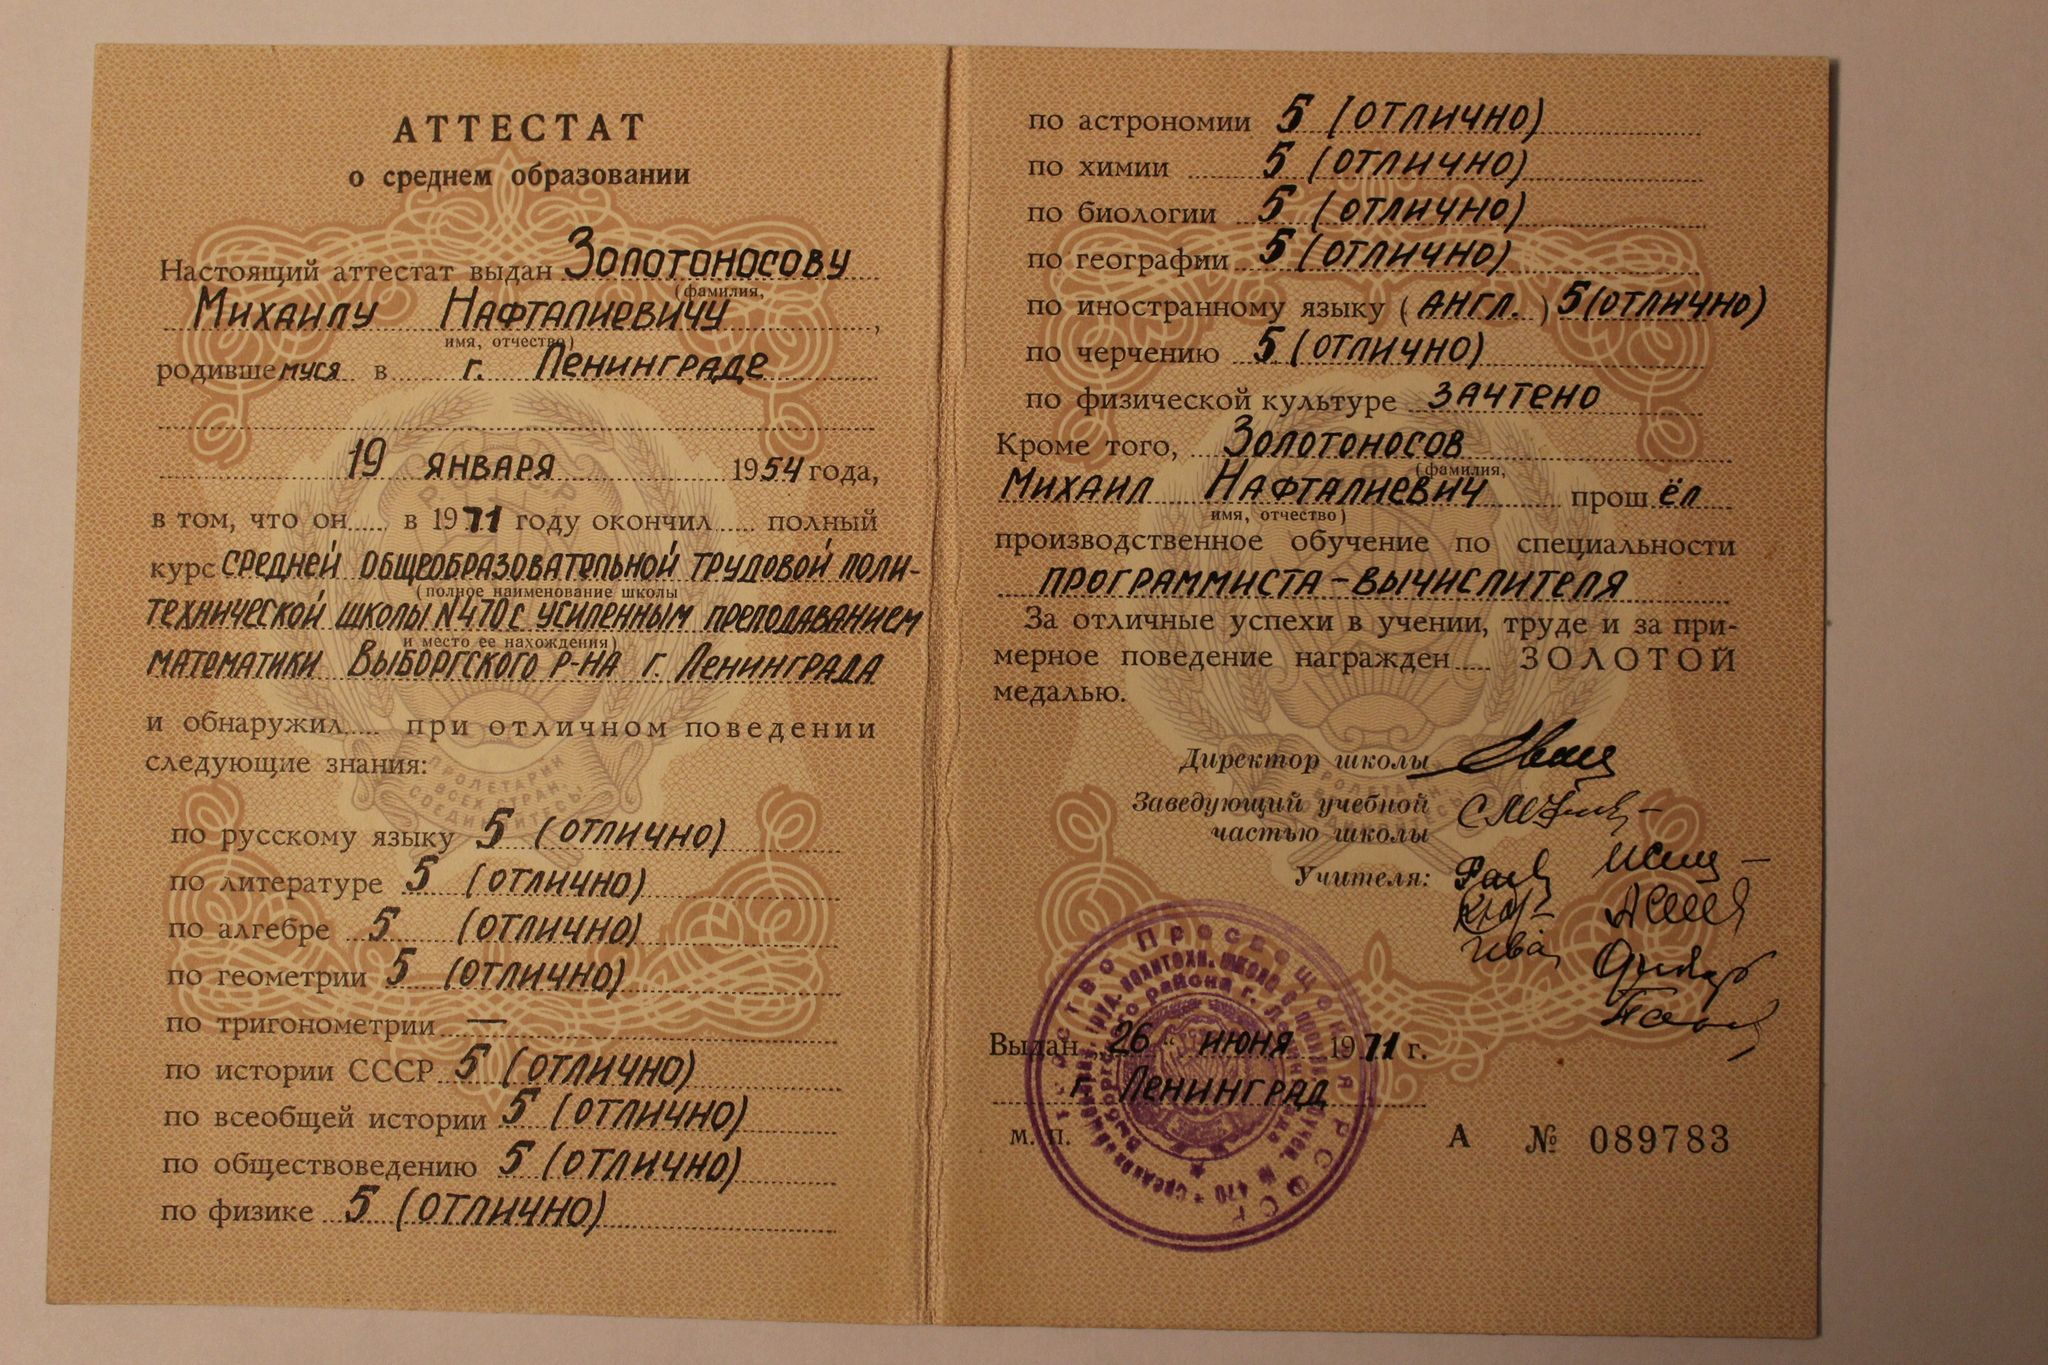 АТТЕСТАТ
о среднем образовании
Настоящий аттестат выдан Золотоносову
(фамилия,
Михаилу Нафталиевичу,
имя, отчество)
родившемуся в г. Ленинграде
19 января 1954 года,
в том, что он в 1971 году окончил полный
курс средней общеобразовательной трудовой поли-
(полное наименование школы
технической школы N 470 с усиленным преподаванием
и место ее нахождения)
математики Выборгского р-на г. Ленинграда
и обнаружил при отличном поведении
следующие знания:
по русскому языку 5 (отлично)
по литературе 5 (отлично)
по алгебре 5 (отлично)
по геометрии 5 (отлично)
по тригонометрии —
по истории СССР 5 (отлично)
по всеобщей истории 5 (отлично)
по обществоведению 5 (отлично)
по физике 5 (отлично)
по астрономии 5 (отлично)
по химии 5 (отлично)
по биологии 5 (отлично)
по географии 5 (отлично)
по иностранному языку (англ.) 5 (отлично)
по черчению 5 (отлично)
по физической культуре зачтено
Кроме того, Золотоносов
(фамилия,
Михаил Нафталиевич прошёл
имя, отчество)
производственное обучение по специальности
программиста-вычислителя
За отличные успехи в учении, труде и за при-
мерное поведение награжден ЗОЛОТОЙ
медалью.
Директор школы
Заведующий учебной
частью школы
Учителя:
Выдан „26" июня 1971 г.
г. Ленинград
м. п.
А № 089783